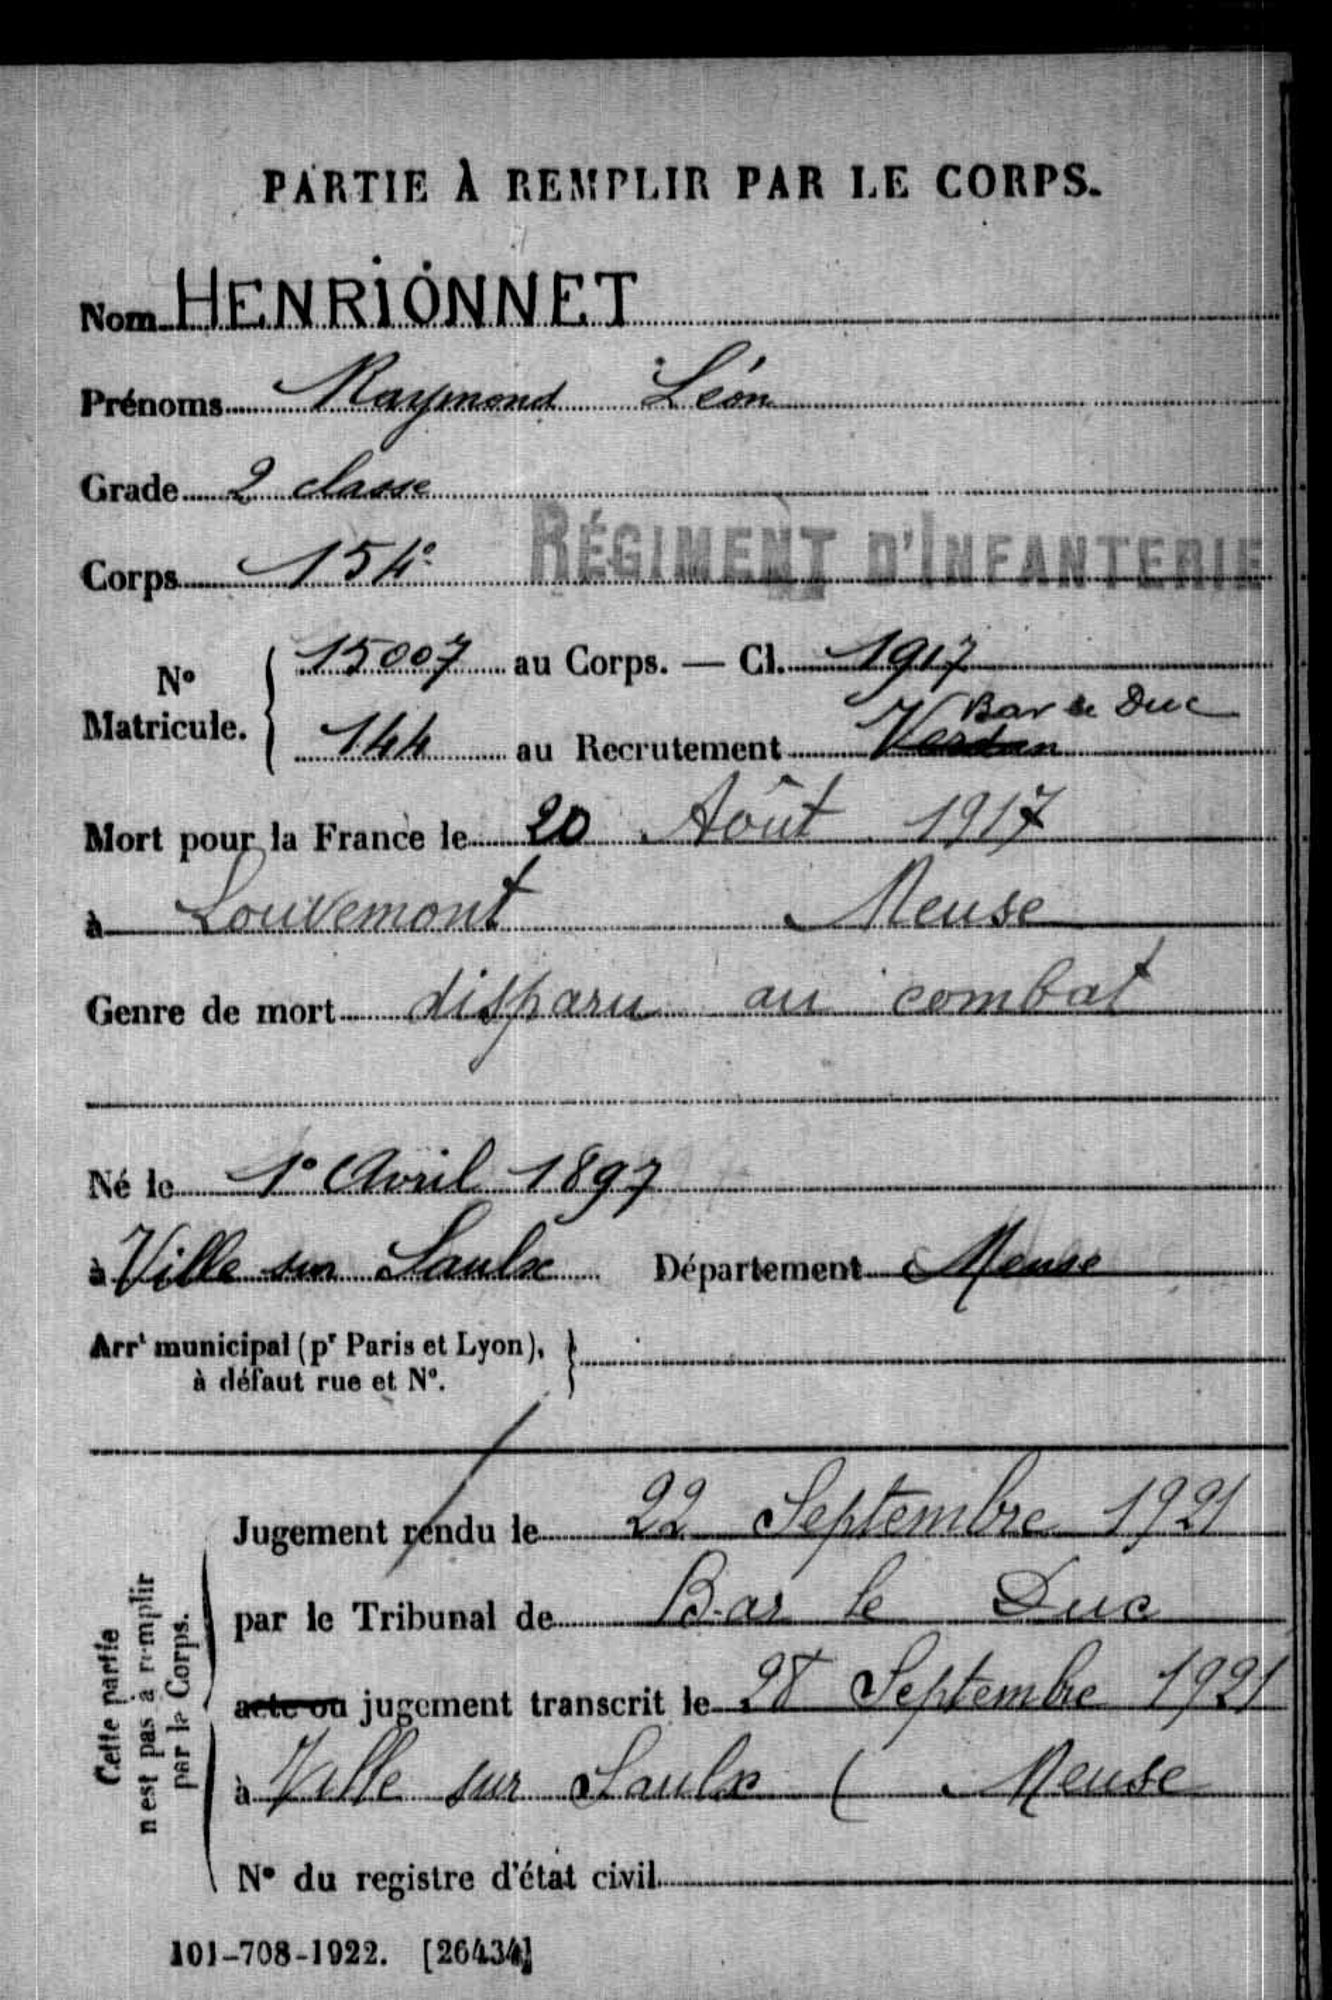 PARTIE À REMPLIR PAR LE CORPS.
Nom HENRIONNET
Prénoms Raymond Léon
Grade 2 classe
Corps 154e RÉGIMENT D'INFANTERIE
N° Matricule. { 15007 au Corps. — Cl. 1917
Bar le Duc
144 au Recrutement Verdun
Mort pour la France le 20 Août 1917
à Louvemont Meuse
Genre de mort disparu au combat
Né le 1° Avril 1897
à Ville sur Saulx Département Meuse
Arrt municipal (pr Paris et Lyon), }
à défaut rue et N°.
Jugement rendu le 22 Septembre 1921
par le Tribunal de Bar le Duc
acte ou jugement transcrit le 28 Septembre 1921
à Ville sur Saulx ( Meuse
N° du registre d'état civil
Cette partie
n'est pas à remplir
par le Corps.
101-708-1922. [26434]